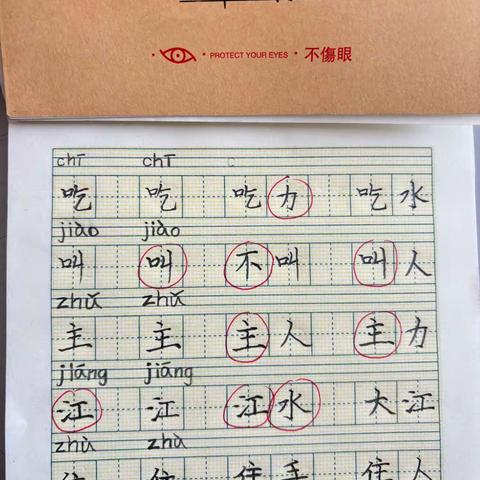 PROTECT YOUR EYES · 不傷眼
chī chī
吃 吃 吃力 吃水
jiào jiào
叫 叫 不叫 叫人
zhǔ zhǔ
主 主 主人 主力
jiāng jiāng
江 江 江水 大江
zhù zhù
住 住 住手 住人